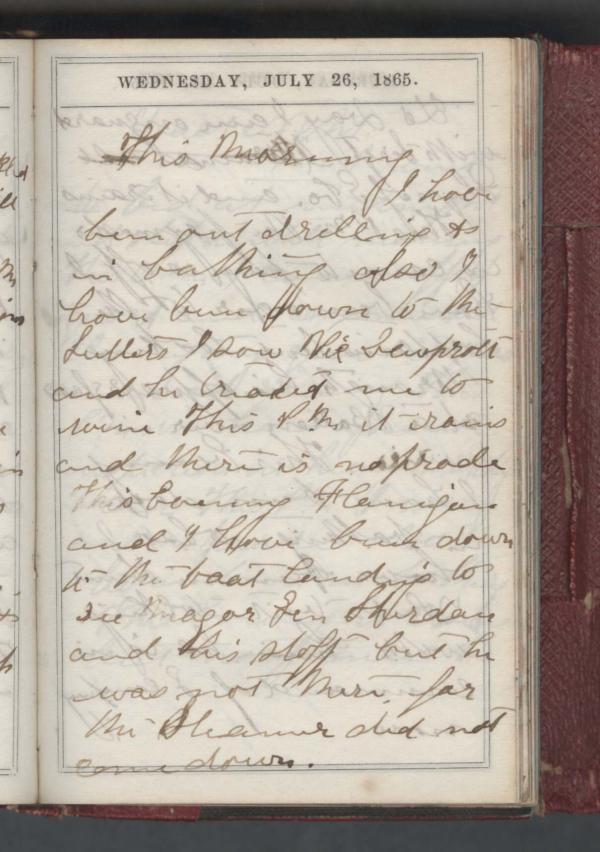 WEDNESDAY, JULY 26, 1865.
This Morning
I have
been out drilling &
in bathing also I
have been down to the
Sutlers I saw Vic
and he treated me to
wine This P.M. it rains
and there is no prade
This Evening Flanigan
and I have been down
to the boat landing to
see Magor Gen
and his staff but he
was not there for
the Steamer did not
come down.